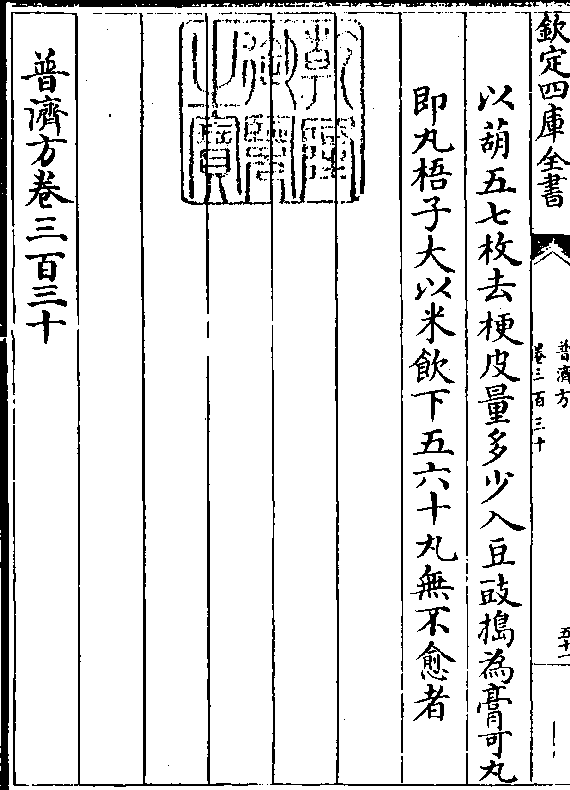 欽定四庫全書
普濟方
卷三百三十
五十一
以葫五七枚去梗皮量多少入豆豉搗為膏可丸
即丸梧子大以米飲下五六十丸無不愈者
乾隆御覽之寶
普濟方卷三百三十